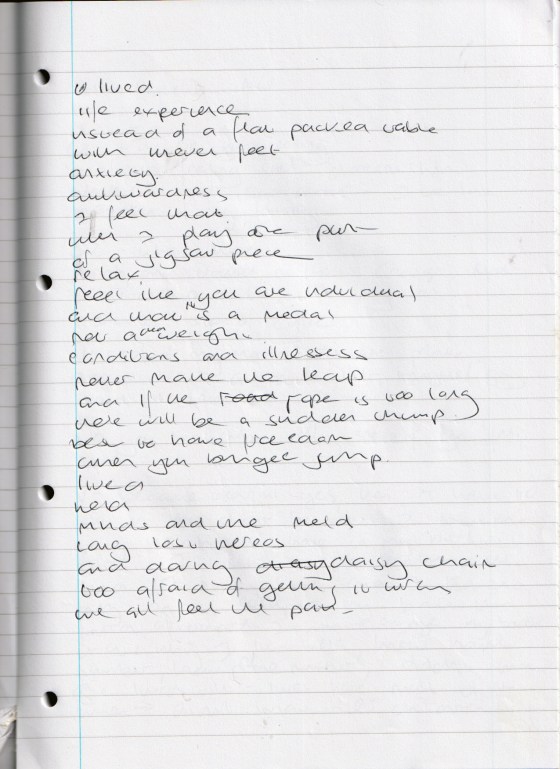 lived.
life experience
instead of a flat packed table
with uneven feet
anxiety.
awkwardness
I feel that.
when I play the part
of a jigsaw piece
relax.
feel like you are individual
and that is a medal
not a dead weight.
conditions and illnessess
never make the leap
and if the rope is too long
there will be a sudden thump.
best to have freedom
when you bungee jump.
lived
held
minds and we meld
long lost heroes
and daring daisy chain
too afraid of getting it wrong
we all feel the pain